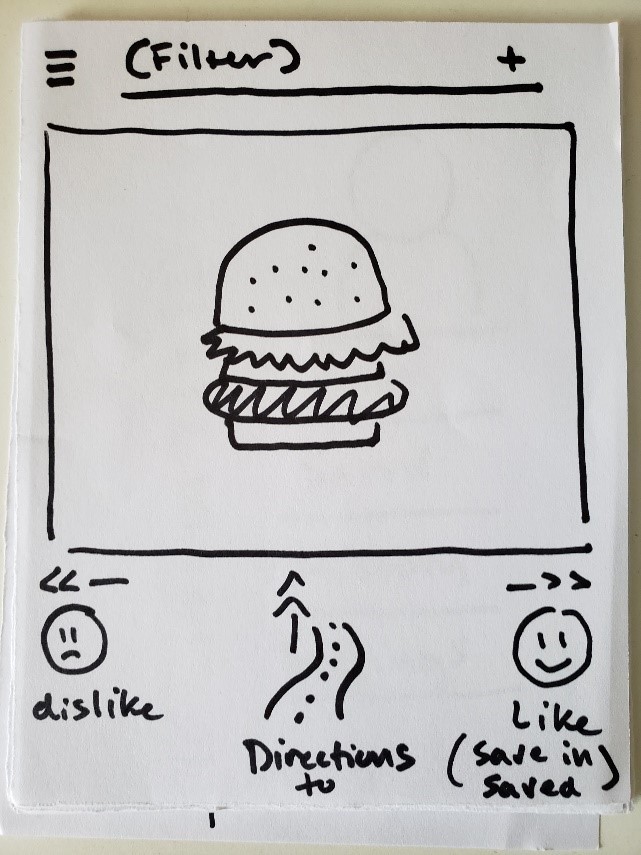 (Filter) +
dislike
Directions
to
Like
(save in)
saved